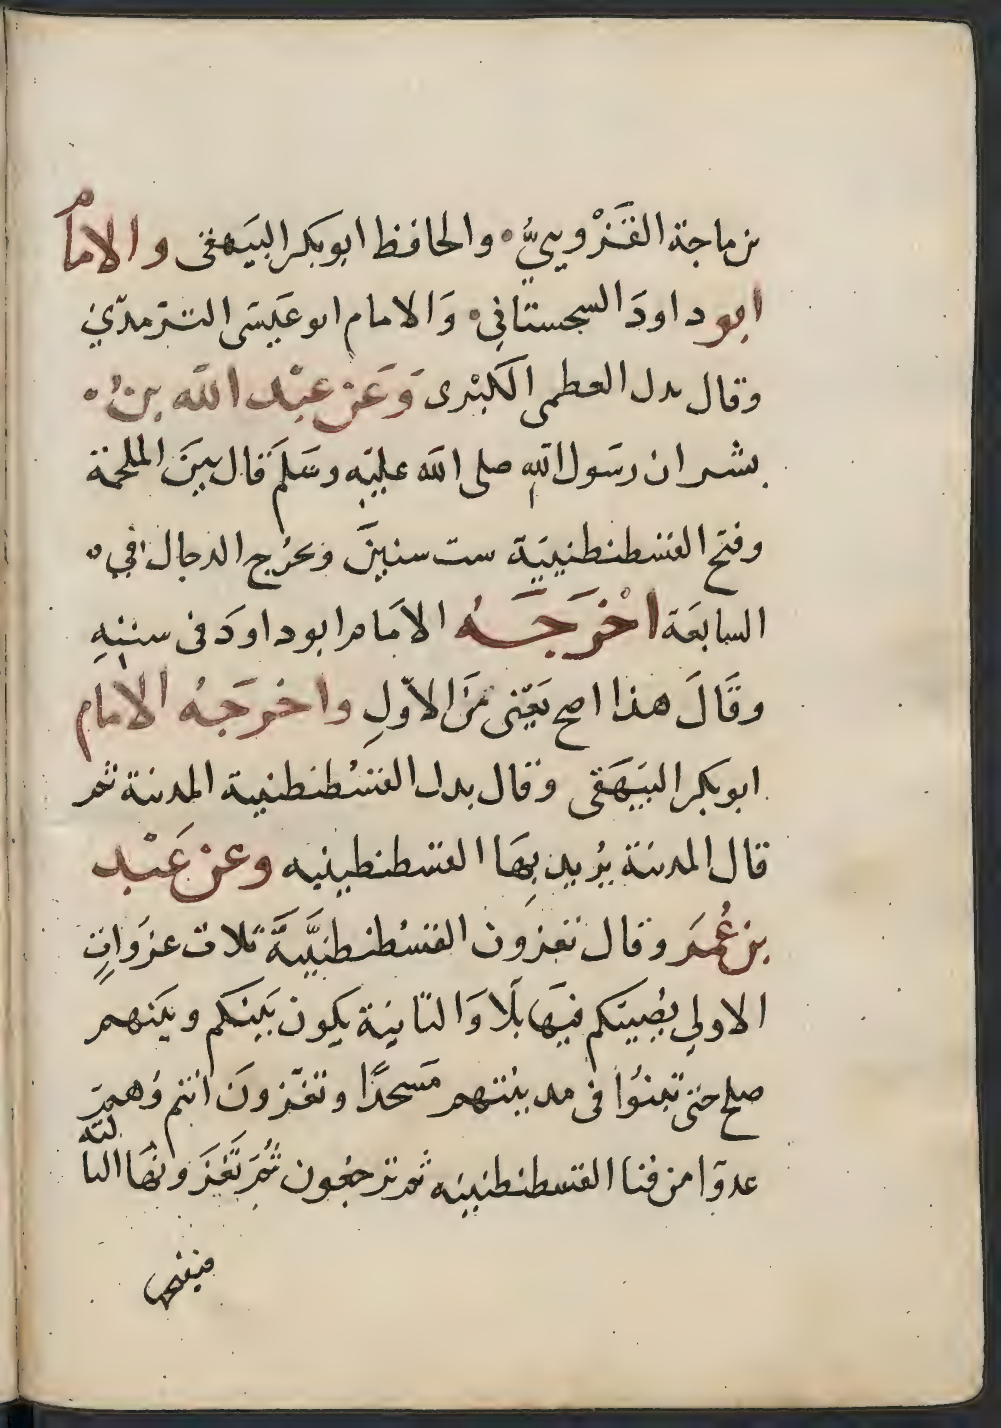 بن ماجة القَزْوينيُّ والحافظ ابوبكر البيَهقى والامام
ابو داودَ السجستاني وَالامام ابوعَيسَى التّرمدّي
وقال بدل العظمى الكبْرى وَعَن عبْد الله بنُ
بشر ان رسَول الله صلى الله عليَه وسَلمَ قال بينَ الملحمَة
وفتح القسْطنطنييَة ست سنينَ ويخرُج الدجال في
السابعَة اخْرَجَهُ الامَام ابو داودَ فى سننهِ
وقَالَ هذا اصح يَعْنى مَن الاوّلِ واخرَجَهُ الامام
ابوبكر البيَهَقى وقال بدل القسْطنطنية المدينة ثم
قال المدينة يُريد بهَا القسطنطينيه وعنْ عَبْد
بن عُمَر وقال تغزون القسْطنطنيَّة ثلاث غزَواتٍ
الاولى يصُيبَكم فيهَا بلَا وَالثانيَة يكون بَينكم وبَينهم
صلح حتى تبْنوُا فى مدينتهم مَسجدًا وتغْزونَ انتم وَهم
عدوّا من فنا القسطنطينيه ثم ترجعُون ثُمَ تَغْزَونهَا الثالثه
فيفتح